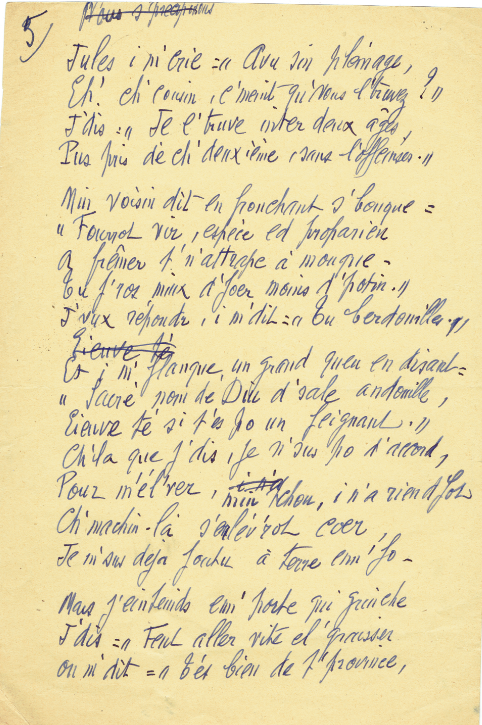 5)
Jules i m'crie = « Avu sin pleinage,
Eh! ch'cousin, c'meint qu'vous l'truvez ? »
J'dis = « Je l'truve inter deux âges,
Pus près de ch'deuxième, sans l'offeinser. »
Min voisin dit en fronchant s'bouque =
« Fourrot vir, espèce ed proparien
A frêmer t'n'attrape à mouque -
Tu f'ros miux d'foer moins d'potin. »
J'vux répondr, i m'dit = « Tu berdouilles. »
Et i m'flanque un grand queu en disant =
« Sacré nom de Diu d'sale andouille,
Eieuve té si t'es po un feignant. »
Ch'la que j'dis, je n'sus po d'accord,
Pour m'él'ver, min tchou, i n'a rien d'fou
Ch'machin-là s'enlév'rot coer,
Je m'sus déjà foutu à terre enn'fo -
Mais j'einteinds enn'porte qui grinche
J'dis = « Feut aller vite el'graisser
On m'dit = « T'es bien de t'province,